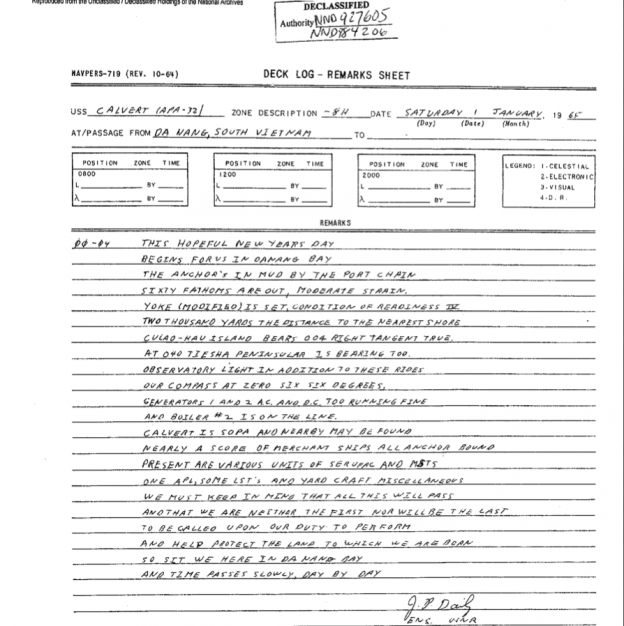 Reproduced from the Unclassified / Declassified Holdings of the National Archives
DECLASSIFIED
Authority NND 927605
NND984206
NAVPERS-719 (REV. 10-64) DECK LOG - REMARKS SHEET
USS CALVERT (APA-32) ZONE DESCRIPTION -8H DATE SATURDAY 1 JANUARY, 19 65
(Day) (Date) (Month)
AT/PASSAGE FROM DA NANG, SOUTH VIETNAM TO
POSITION ZONE TIME
0800
L BY
λ BY
POSITION ZONE TIME
1200
L BY
λ BY
POSITION ZONE TIME
2000
L BY
λ BY
LEGEND: 1-CELESTIAL
2-ELECTRONIC
3-VISUAL
4-D.R.
REMARKS
00-04 THIS HOPEFUL NEW YEARS DAY
BEGINS FOR US IN DANANG BAY
THE ANCHOR'S IN MUD BY THE PORT CHAIN
SIXTY FATHOMS ARE OUT, MODERATE STRAIN.
YOKE (MODIFIED) IS SET, CONDITION OF READINESS IV
TWO THOUSAND YARDS THE DISTANCE TO THE NEAREST SHORE
CULAO-HAU ISLAND BEARS 004 RIGHT TANGENT TRUE.
AT 040 TIESHA PENINSULAR IS BEARING TOO.
OBSERVATORY LIGHT IN ADDITION TO THESE RIDES
OUR COMPASS AT ZERO SIX SIX DEGREES,
GENERATORS 1 AND 2 A.C. AND D.C. TOO RUNNING FINE
AND BOILER #2 IS ON THE LINE.
CALVERT IS SOPA AND NEARBY MAY BE FOUND
NEARLY A SCORE OF MERCHANT SHIPS ALL ANCHOR BOUND
PRESENT ARE VARIOUS UNITS OF SERVPAC AND MSTS
ONE APL, SOME LST'S AND YARD CRAFT MISCELLANEOUS
WE MUST KEEP IN MIND THAT ALL THIS WILL PASS
AND THAT WE ARE NEITHER THE FIRST NOR WILL BE THE LAST
TO BE CALLED UPON OUR DUTY TO PERFORM
AND HELP PROTECT THE LAND TO WHICH WE ARE BORN
SO SIT WE HERE IN DA NANG BAY
AND TIME PASSES SLOWLY, DAY BY DAY
J.P. Daily
ENS. USNR